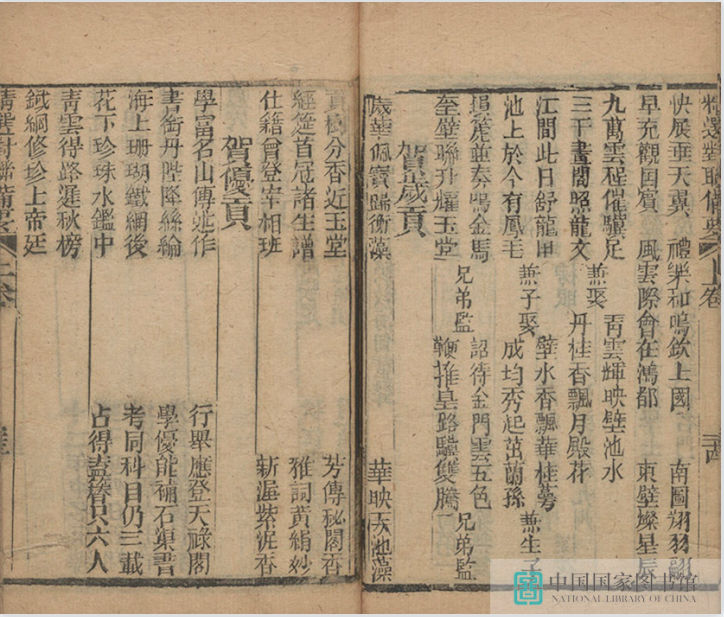 精選對聯備要 上卷
快展垂天翼 禮樂和鳴欽上國 南圖翔羽翮
早充觀国賓 風雲際會在鴻都 東壁燦星辰
九萬雲程催驥足 兼娶 靑雲輝映壁池水
三千畫閣照龍文 丹桂香飄月殿花
江間此日舒龍甲 兼子娶 壁水香飄華桂萼
池上於今有鳳毛 成均秀起茁蘭孫 兼生子
塤箎並奏鳴金馬 兄弟監 詔待金門雲五色
奎壁聯升耀玉堂 鞭推皇路驥雙騰 兄弟監
賀歲貢
歲華佩寶歸衡藻 華映天池藻
貢樹分香近玉堂 芳傳秘閣香
經筵首冠諸生譜 雅詞黃絹妙
仕籍曾登宰相班 新渥紫泥香
賀優貢
學富名山傳述作 行舉應登天祿閣
書銜丹陛降絲綸 學優能補石渠書
海上珊瑚鐵網後 考同科目仍三載
花下珍珠水鑑中 占得盍簪只六人
靑雲得路遲秋榜
鐵網修珍上帝廷
精選對聯備要 上卷
中国国家图书馆
NATIONAL LIBRARY OF CHINA